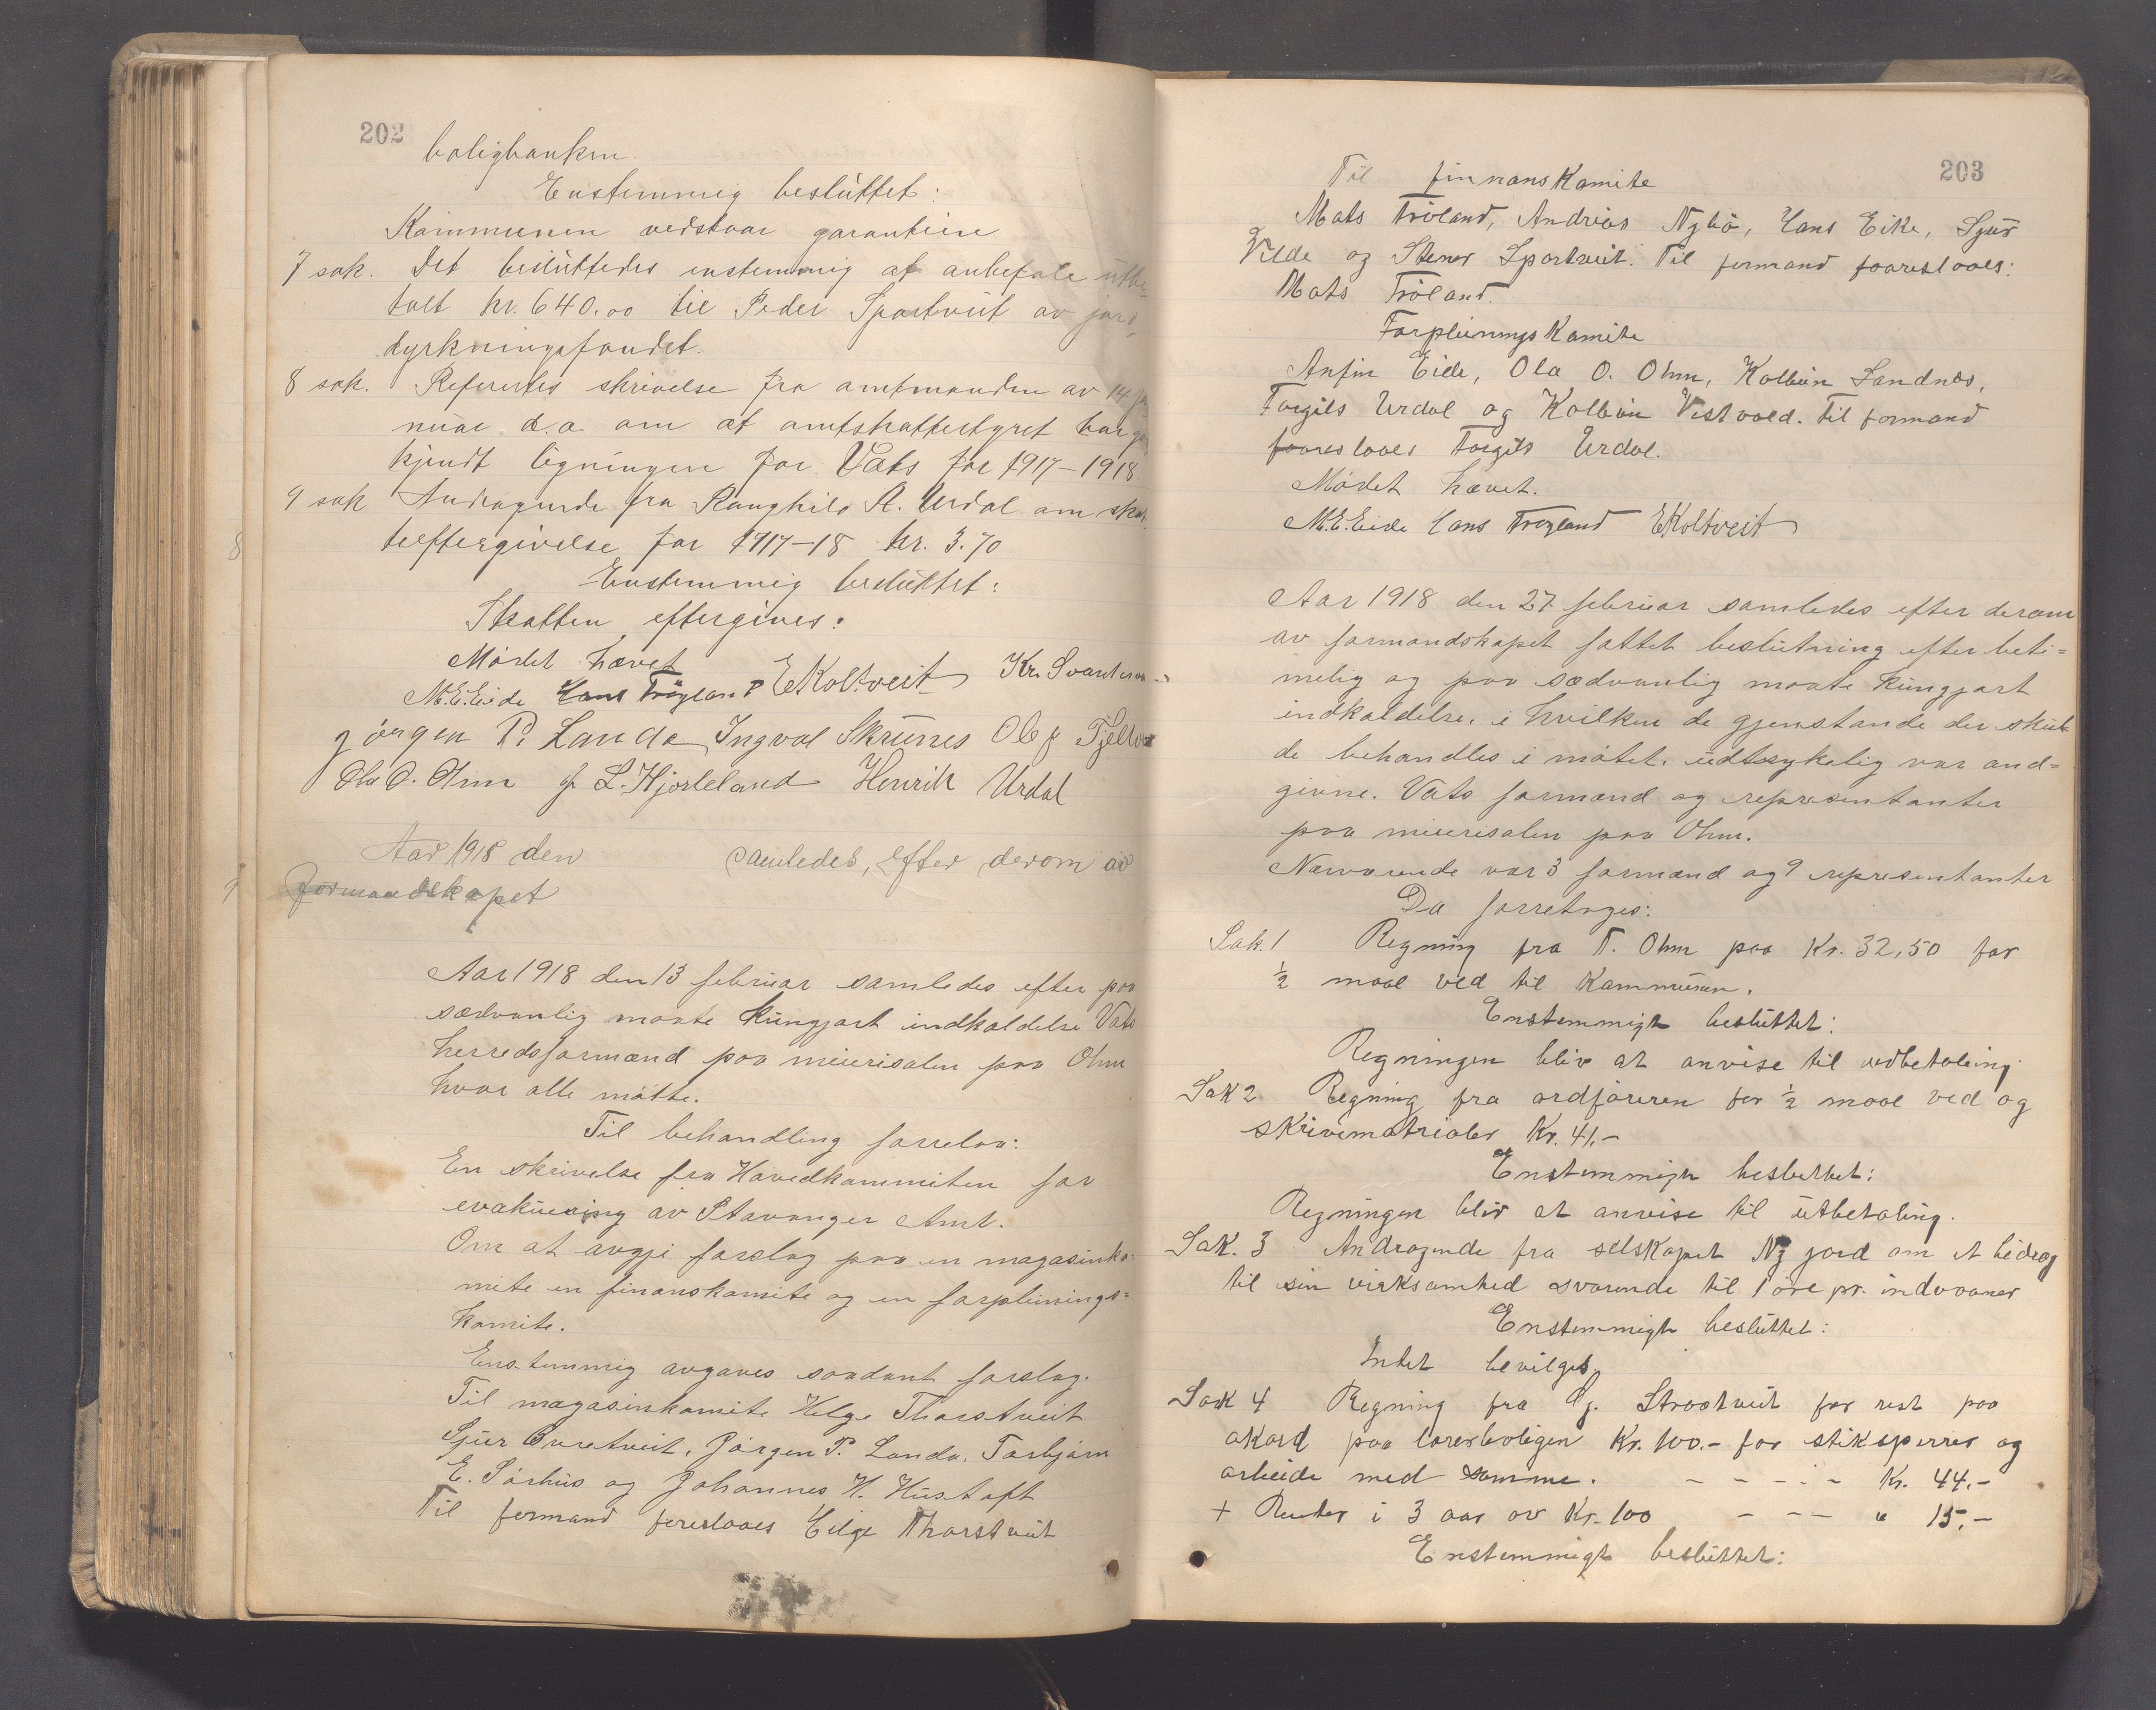 202
boligbanken.
Enstemmig besluttet:
Kommunen vedstaar garantien
7 sak. Det besluttedes enstemmig at anbefale utbe-
talt kr. 640.00 til Peder Sportveit av jord-
dyrkningsfondet.
8 sak. Refereredes skrivelse fra amtmanden av 14 ja-
nuar d.a. om at amtskattestyret har
kjendt ligningen for Vats for 1917-1918
9 sak Andragende fra Ranghild A. Urdal om skat-
teeftergivelse for 1917-18 kr. 3.70
Enstemmig besluttet:
Skatten eftergives.
Mødet hævet
M.E. Eide Hans Trøyland E Koltveit Kr. Svartevan
Jörgen P. Landa Ingval Skrunes Olaf Fjellt
Ola O. Ohm L. Hjorteland Henrik Urdal
Aar 1918 den samledes, efter derom av
formandskapet
Aar 1918 den 13 februar samledes efter paa
sædvanlig maate kungjort indkaldelse Vats
herredsformænd paa meierisalen paa Ohm
hvor alle møtte.
Til behandling forelaa:
En skrivelse fra Hovedkommiteen for
evakuering av Stavanger Amt.
Om at avgi forslag paa en magasinko-
mite en finanskomite og en forpleinings-
komite.
Enstemmig avgaves saadant forslag.
Til magasinkomite Helge Thorstveit
Sjur Øvretveit, Jørgen P. Landa, Torbjørn
E. Sørhus og Johannes H. Hustoft
Til formand foreslaaes Helge Thorstveit
203
Til finnanskomite
Mats Tröland, Andreas Nybø, Hans Eike, Sjur
Vilde og Stener Sportveit. Til formand foareslaaes:
Mats Tröland.
Forpleiningskomite
Anfin Eide, Ola O. Ohm, Kolbein Sandnes,
Torgils Urdal og Kolbein Vestvold. Til formand
foareslaaes Torgils Urdal.
Mødet hævet.
M.E. Eide Hans Trøyland E Koltveit
Aar 1918 den 27 februar samledes efter derom
av formandskapet fattet beslutning efter beti-
melig og paa sædvanlig maate kungjort
indkaldelse, i hvilken de gjenstande der skul-
de behandles i møtet, udtrykelig var and-
givne. Vats formænd og representanter
paa meierisalen paa Ohm.
Nærværende var 3 formænd og 9 representanter
Da forretoges:
Sak. 1 Regning fra T. Ohm paa Kr. 32,50 for
½ maal ved til Kommunen.
Enstemmigt besluttet:
Regningen bliv at anvise til udbetaling.
Sak 2 Regning fra ordføreren for ½ maal ved og
skrivematrialer Kr. 41.-
Enstemmigt besluttet:
Regningen bliv at anvise til utbetaling.
Sak. 3 Andragende fra selskapet Ny jord om et bidrag
til sin virksomhed svarende til 1 øre pr. indvaaner
Enstemmigt besluttet:
Intet bevilges.
Sak 4 Regning fra Gj. Straatveit for rest paa
akord paa lærerboligen Kr. 100.- for stiksperrer og
arbeide med samme. - - - - - Kr. 44.-
+ Renter i 3 aar av Kr. 100 - - - " 15.-
Enstemmigt besluttet: